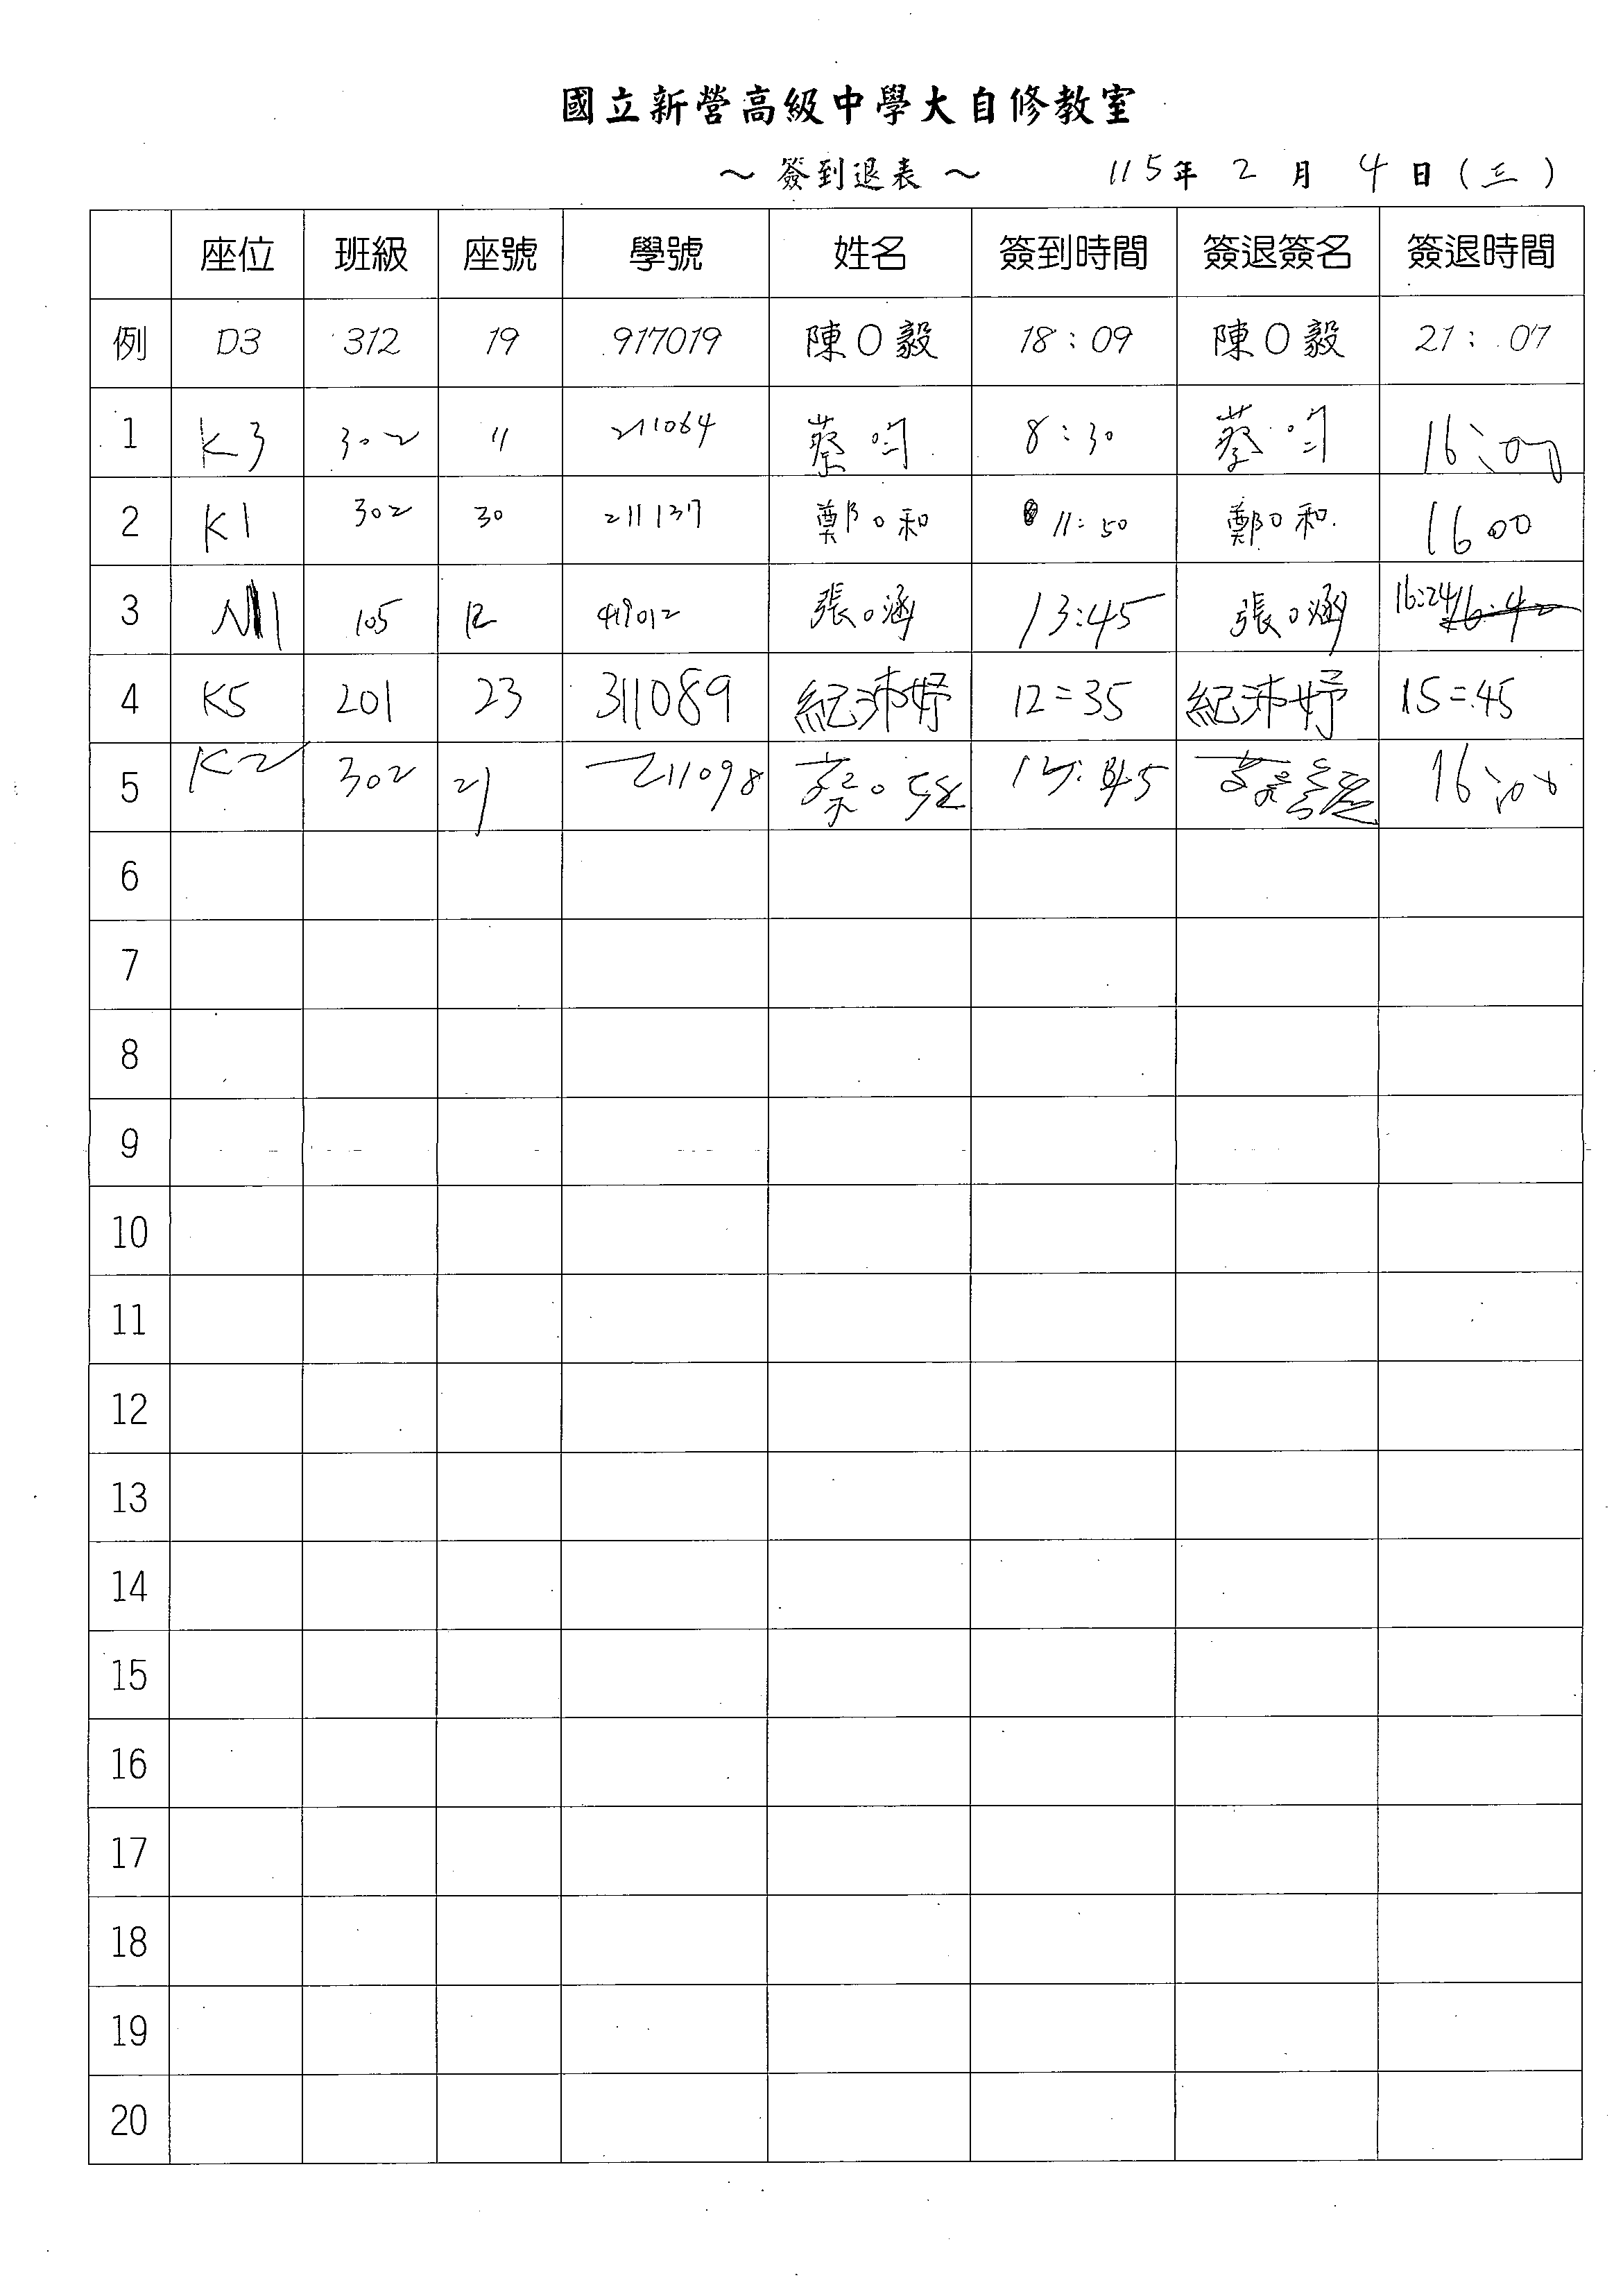 國立新營高級中學大自修教室
～ 簽到退表 ～ 115年 2 月 4 日 (三)
座位 班級 座號 學號 姓名 簽到時間 簽退簽名 簽退時間
例 D3 312 19 917019 陳O毅 18:09 陳O毅 21:07
1 K3 302 11 211064 蔡 8:30 蔡
2 K1 302 30 211137 鄭O和 11:50 鄭O和 16 00
3 105 12 張O涵 13:45 張O涵 16:24
4 K5 201 23 311089 紀沛妤 12=35 紀沛妤 15=45
5 K2 302 21 211098 蔡O 16:00
6
7
8
9
10
11
12
13
14
15
16
17
18
19
20